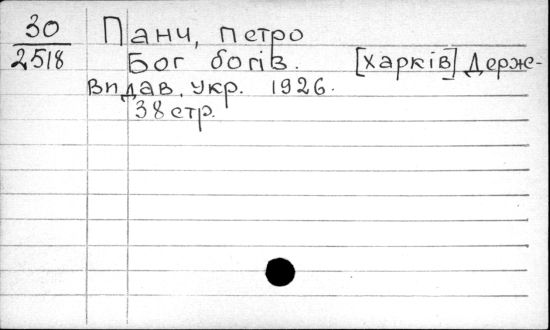 30 Панч, Петро
2518 Бог богів. [Харків] Держ-
видав. Укр. 1926.
38 стр.